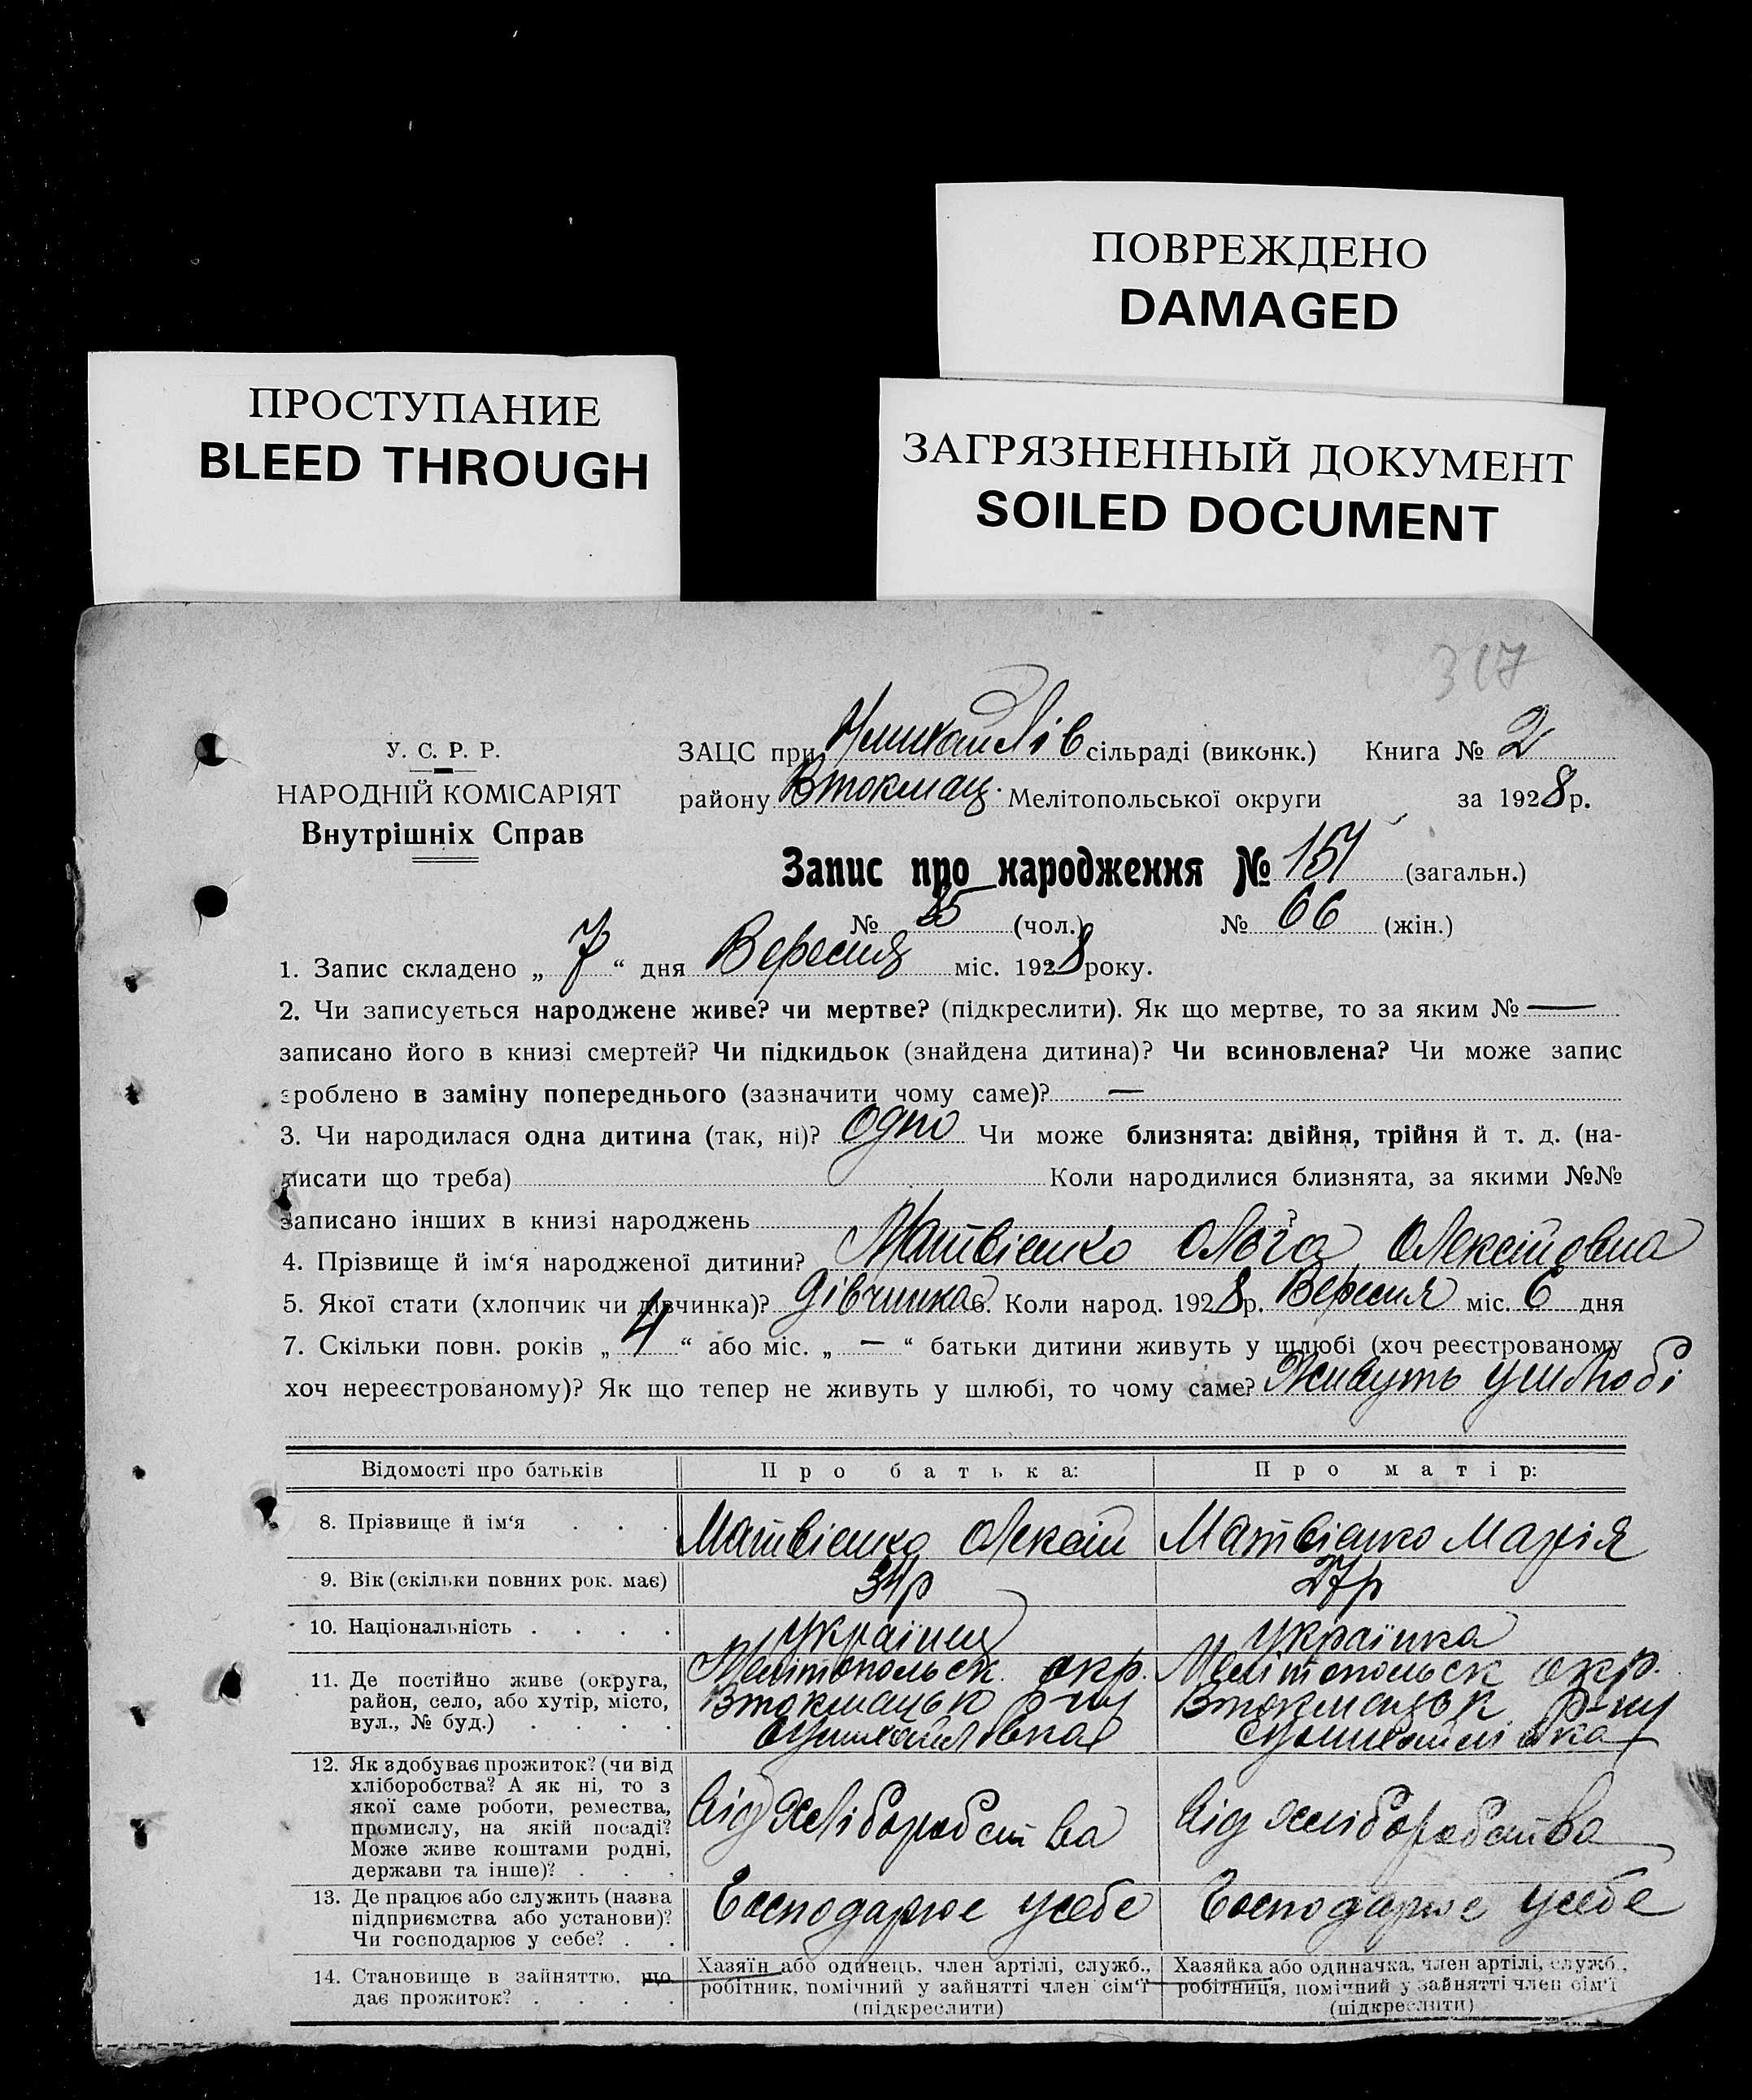 ПОВРЕЖДЕНО
DAMAGED
ПРОСТУПАНИЕ
BLEED THROUGH
ЗАГРЯЗНЕННЫЙ ДОКУМЕНТ
SOILED DOCUMENT
317
У. С. Р. Р.
НАРОДНІЙ КОМІСАРІЯТ
Внутрішніх Справ
ЗАЦС при сільраді (виконк.) Книга № 2
району Втокмац. Мелітопольської округи за 1928 р.
Запис про народження № 151 (загальн.)
№ 85 (чол.) № 66 (жін.)
1. Запис складено „ 7 “ дня Вересня міс. 1928 року.
2. Чи записується народжене живе? чи мертве? (підкреслити). Як що мертве, то за яким № —
записано його в книзі смертей? Чи підкидьок (знайдена дитина)? Чи всиновлена? Чи може запис
зроблено в заміну попереднього (зазначити чому саме)? —
3. Чи народилася одна дитина (так, ні)? одно Чи може близнята: двійня, трійня й т. д. (на-
писати що треба) Коли народилися близнята, за якими №№
записано інших в книзі народжень ?
4. Прізвище й ім‘я народженої дитини? Матвієнко Ольга Олексійовна
5. Якої стати (хлопчик чи дівчинка)? дівчинка 6. Коли народ. 1928 р. Вересня міс. 6 дня
7. Скільки повн. років „ 4 “ або міс. „ — “ батьки дитини живуть у шлюбі (хоч реєстрованому
хоч нереєстрованому)? Як що тепер не живуть у шлюбі, то чому саме? Живуть ушлюбі
Відомості про батьків Про батька: Про матір:
8. Прізвище й ім‘я . . . Матвієнко Олексій Матвієнко Марія
9. Вік (скільки повних рок. має) 34р 27р
10. Національність . . . . Українец Українка
11. Де постійно живе (округа, Мелітопольськ окр. Мелітопольськ окр.
район, село, або хутір, місто, Втокмацьк р-ну Втокмацьк р-ну
вул., № буд.) . . . .
12. Як здобуває прожиток? (чи від
хліборобства? А як ні, то з
якої саме роботи, ремества, від хліборобства від хліборобства
промислу, на якій посаді?
Може живе коштами родні,
держави та інше)? . . .
13. Де працює або служить (назва Господарює усебе Господарює усебе
підприємства або установи)?
Чи господарює у себе? . .
14. Становище в зайняттю, що Хазяїн або одинець, член артілі, служб., Хазяйка або одиначка, член артілі, служб.,
дає прожиток? . . . . робітник, помічний у зайнятті член сім‘ї робітниця, помічний у зайнятті член сім‘ї
(підкреслити) (підкреслити)